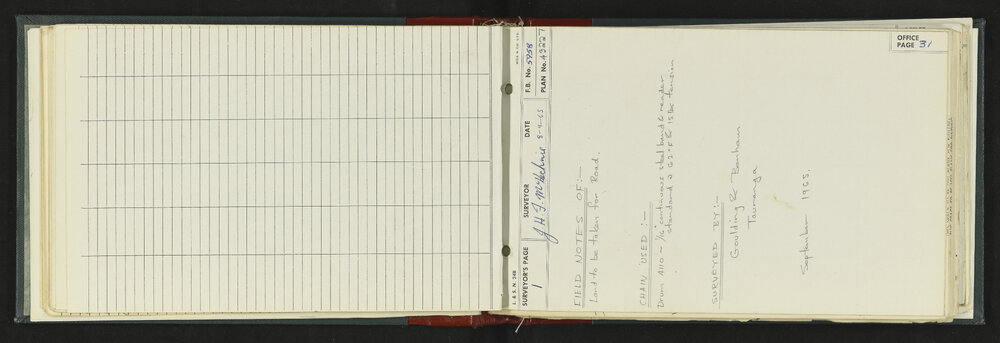 OFFICE
PAGE 31
L. & S. N. 248
SURVEYOR'S PAGE
1
SURVEYOR
DATE
8-9-65
F.B. No. 5958
PLAN No. 43227
FIELD NOTES OF:-
Land to be taken for Road.
CHAIN USED:-
Drum A110 - 1/16" continuous steel band & reader
standard @ 62°F & 15 lbs tension
SURVEYED BY:-
Goulding & Bonham
Tauranga
September 1965.